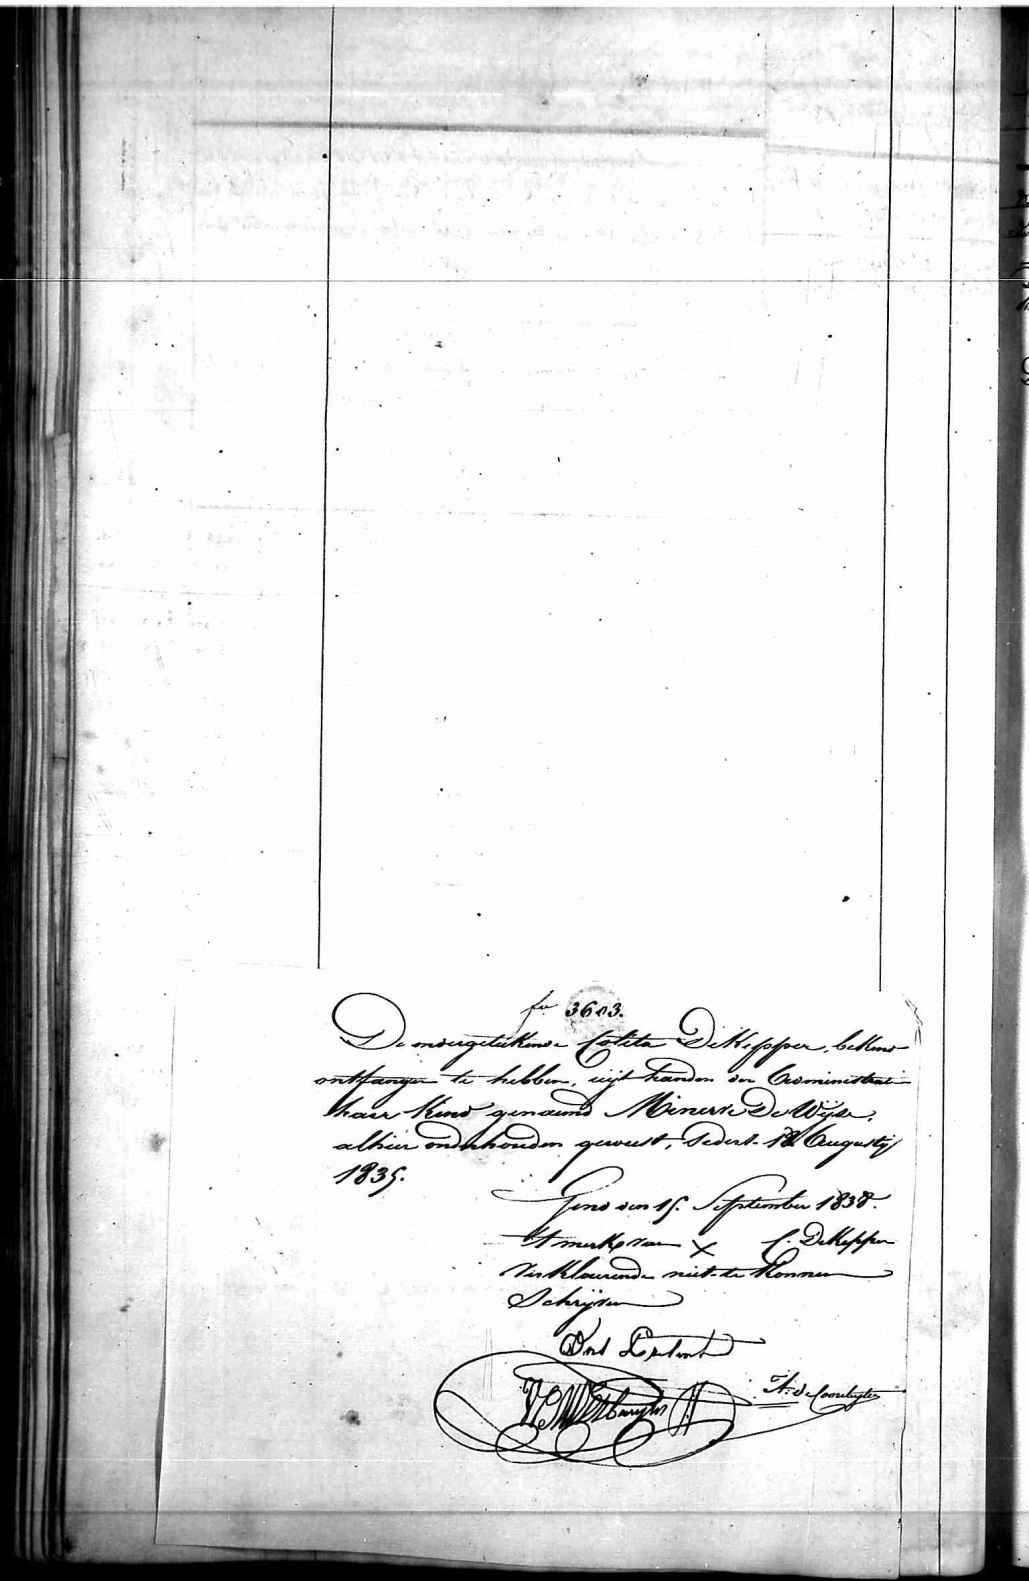 fo 3603.
De ondergetekende Colita DeKepper, bekend
ontfangen te hebben, uijt handen der Administratie
haer Kind genaemd Minerve De Wyse,
alhier onderhouden geweest, sedert 18 Augusty
1835.
Gend den 15. September 1838.
't merk van X C. DeKepper
Verklaerende niet te konnen
Schryven
A. de